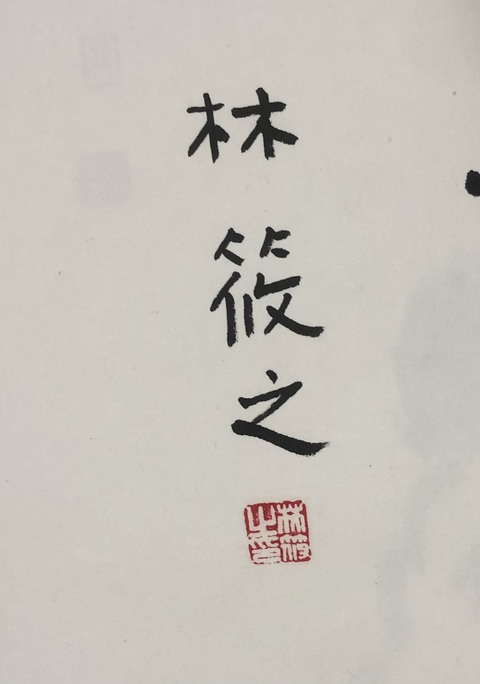 林筱之
林筱
之